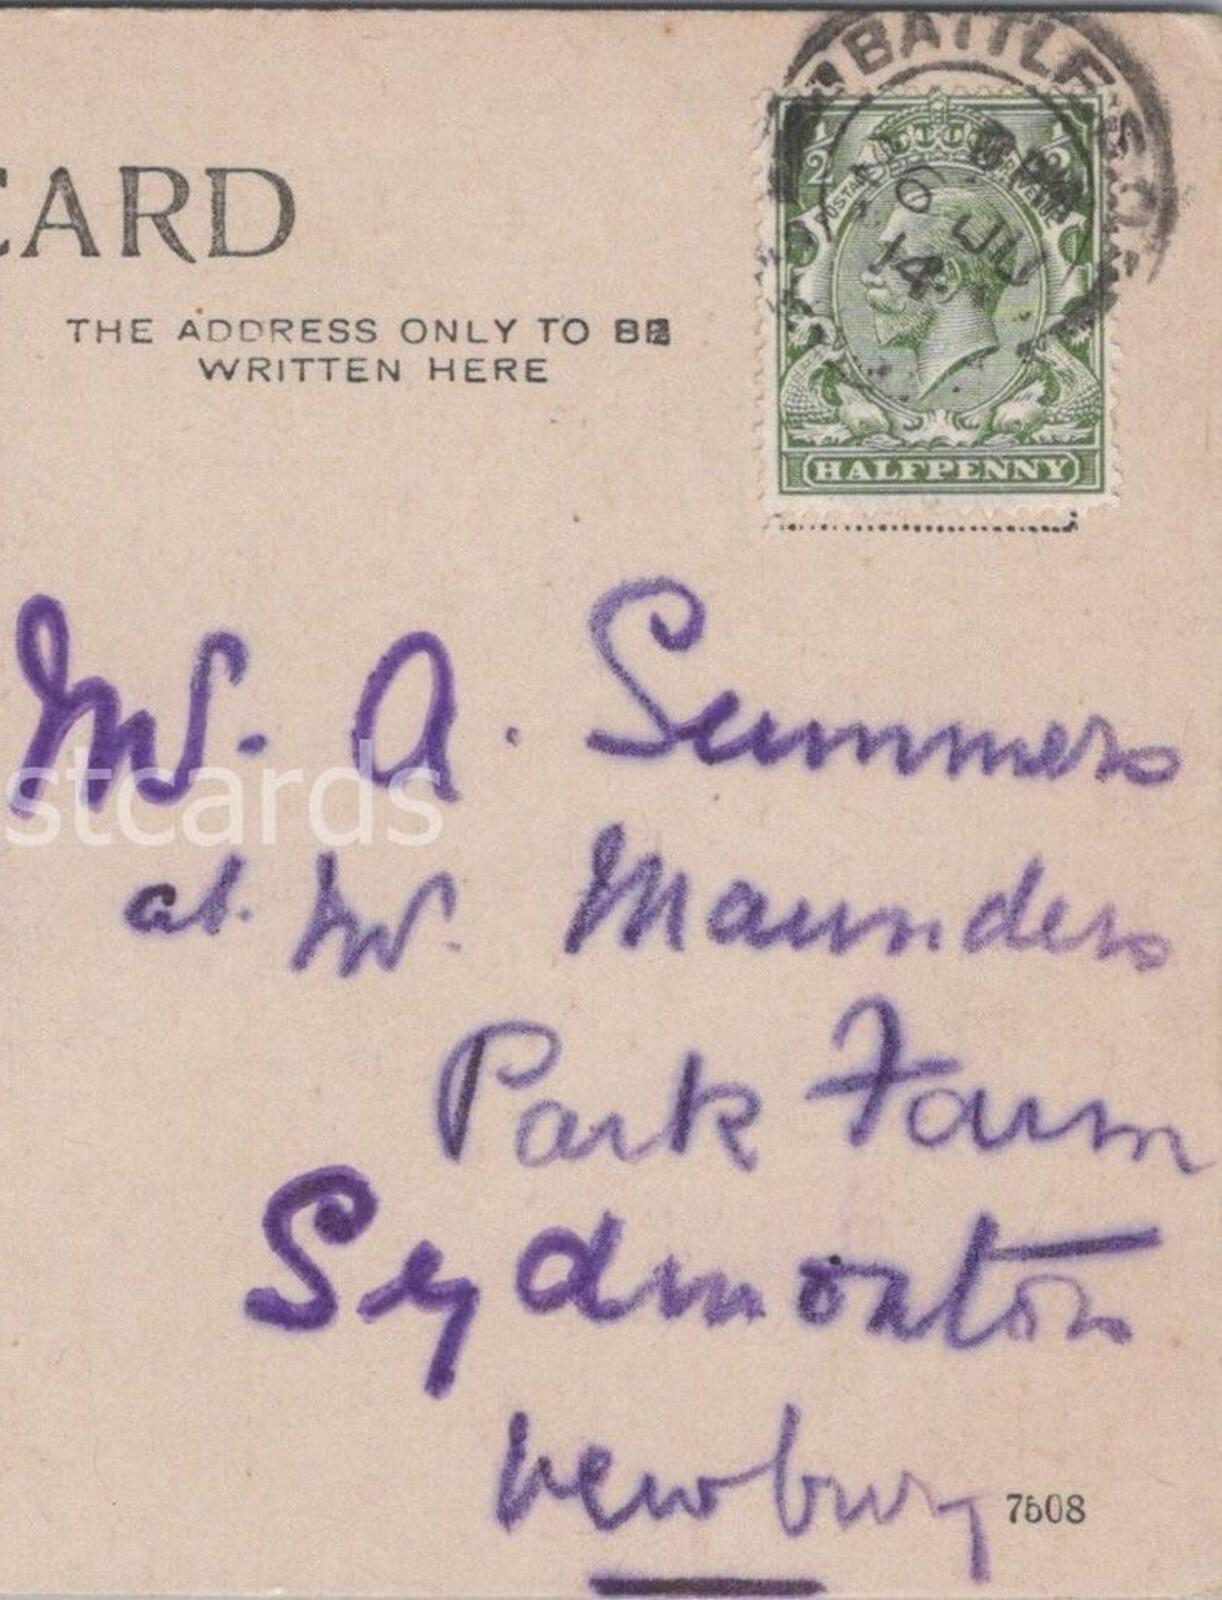 BATTLE
CARD
1/2 1/2
POSTAGE REVENUE
6 JU
14
THE ADDRESS ONLY TO BE
WRITTEN HERE
HALFPENNY
Mr. A. Summers
stcards
at. Mr. Maunders
Park Farm
Sydmonton
Newbury
7508